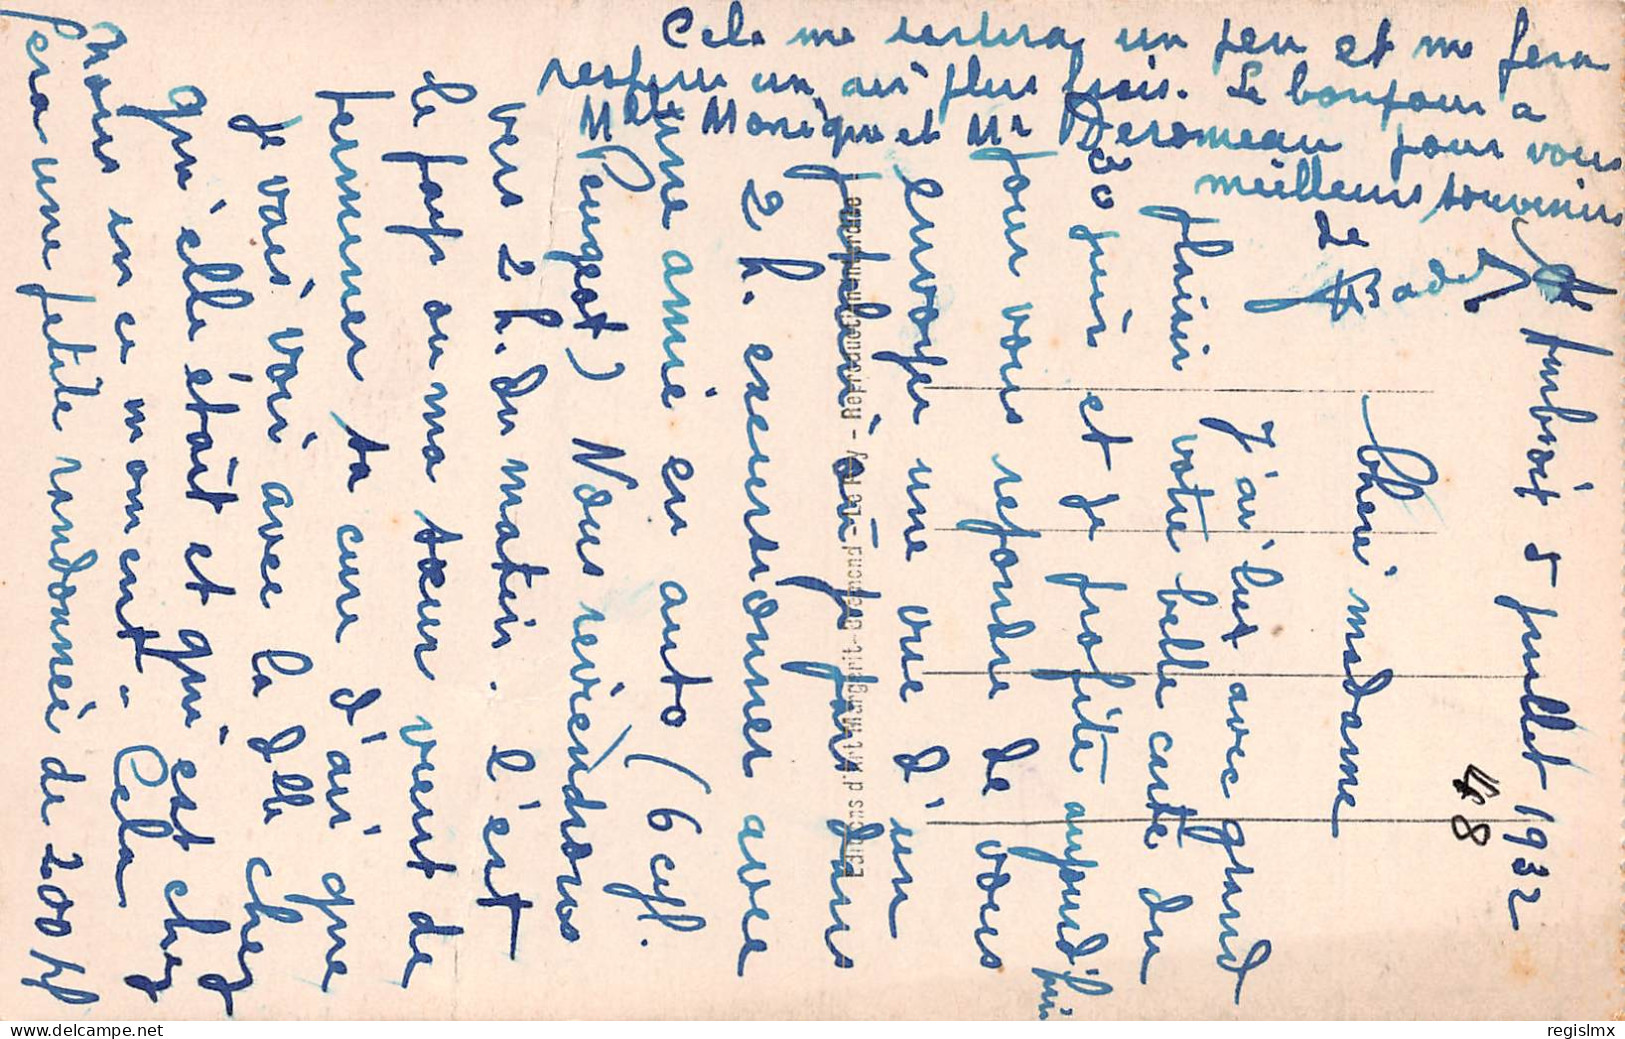 5 juillet 1932
48
Chère madame
J'ai lut avec grand
plaisir votre belle carte du
30 juin et je profite aujourd'hui
pour vous repondre de vous
envoyer une vue d'un
où je pars dans
2 h. excursionner avec
une amie en auto (6 cyl.
Peugeot) Nous reviendrons
vers 2 h. du matin. C'est
le pays ou ma sœur vient de
terminer sa cure d'air que
je vais voir avec la dlle chez
qui elle était et qui est chez
nous en ce moment. Cela
fera une petite randonnée de 200 K
Cela me sortira un peu et me fera
respirer un air plus frais. Le bonjour à
Mlle Monique et Mr Deromeau pour vous
meilleurs souvenirs
Editions d'Art Margerit-Brémond-Le Puy - Reproduction interdite
regislmx